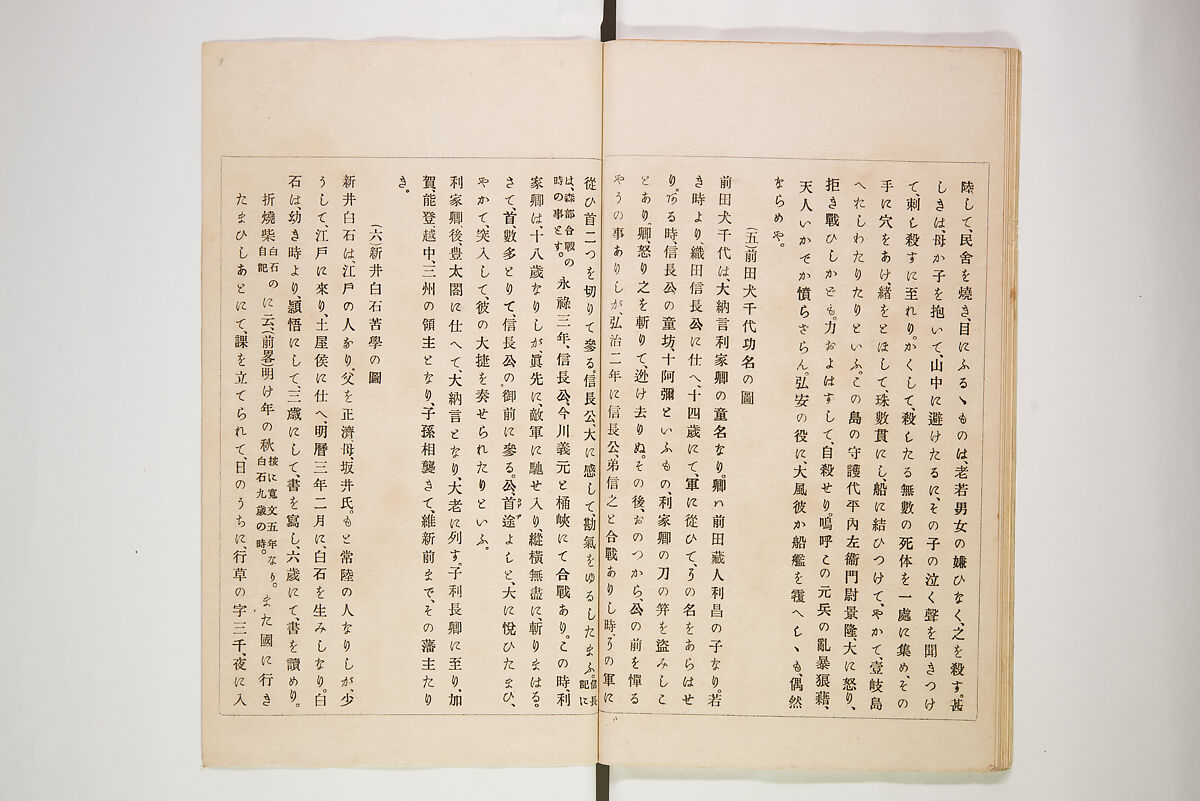 陸して、民舍を燒き、目にふるゝものは、老若男女の嫌ひなく、之を殺す。甚
しきは母か子を抱いて、山中に避けたるに、その子の泣く聲を聞きつけ
て、刺し殺すに至れり。かくして、殺したる無數の死体を一處に集め、その
手に穴をあけ、緖をとほして、珠數貫にし、船に結ひつけて、やかて、壹岐島
へれしわたりたりといふ。この島の守護代平內左衞門尉景隆、大に怒り、
拒き戰ひしかども、力およはすして、自殺せり。嗚呼この元兵の亂暴狼藉、
天人いかでか憤らざらん。弘安の役に、大風彼か船艦を覆へしゝも、偶然
ならめや。
(五)前田犬千代功名の圖
前田犬千代は大納言利家卿の童名なり。卿ハ前田藏人利昌の子なり。若
き時より、織田信長公に仕へ、十四歲にて、軍に從ひて、その名をあらはせ
り。ある時、信長公の童坊、十阿彌といふもの、利家卿の刀の笄を盜みしこ
とあり。卿、怒り之を斬りて、迯け去りぬ。その後、おのつから、公の前を憚る
やうの事ありしが、弘治二年に信長公、弟信之と合戰ありし時、その軍に
從ひ首二つを切りて參る。信長公、大に感して、勘氣をゆるしたまふ。信長記に
は、森部合戰の時の事とす。永祿三年、信長公、今川義元と桶峽にて合戰あり。この時利
家卿は、十八歲なりしが眞先に、敵軍に馳せ入り、縱橫無盡に、斬りまはる。
さて、首數多とりて、信長公の御前に參る。公、首途よしと、大に悅ひたまひ、
やかて、突入して、彼の大捷を奏せられたりといふ。
利家卿後、豊太閤に仕へて、大納言となり、大老に列す。子利長卿に至り、加
賀、能登越中、三州の領主となり、子孫相襲きて、維新前まで、その藩主たり
き。
(六)新井白石苦學の圖
新井白石は、江戶の人なり。父を正濟母、坂井氏。もと常陸の人なりしが、少
うして、江戶に來り、土屋侯に仕へ、明曆三年二月に、白石を生みしなり。白
石は、幼き時より、穎悟にして、三歲にして、書を寫し、六歲にて、書を讀めり。
折燒柴白石自記のに云、(前畧)明け年の秋按に寬文五年なり。白石九歲の時。また國に行き
たまひしあとにて、課を立てられて、日のうちに、行草の字三千、夜に入